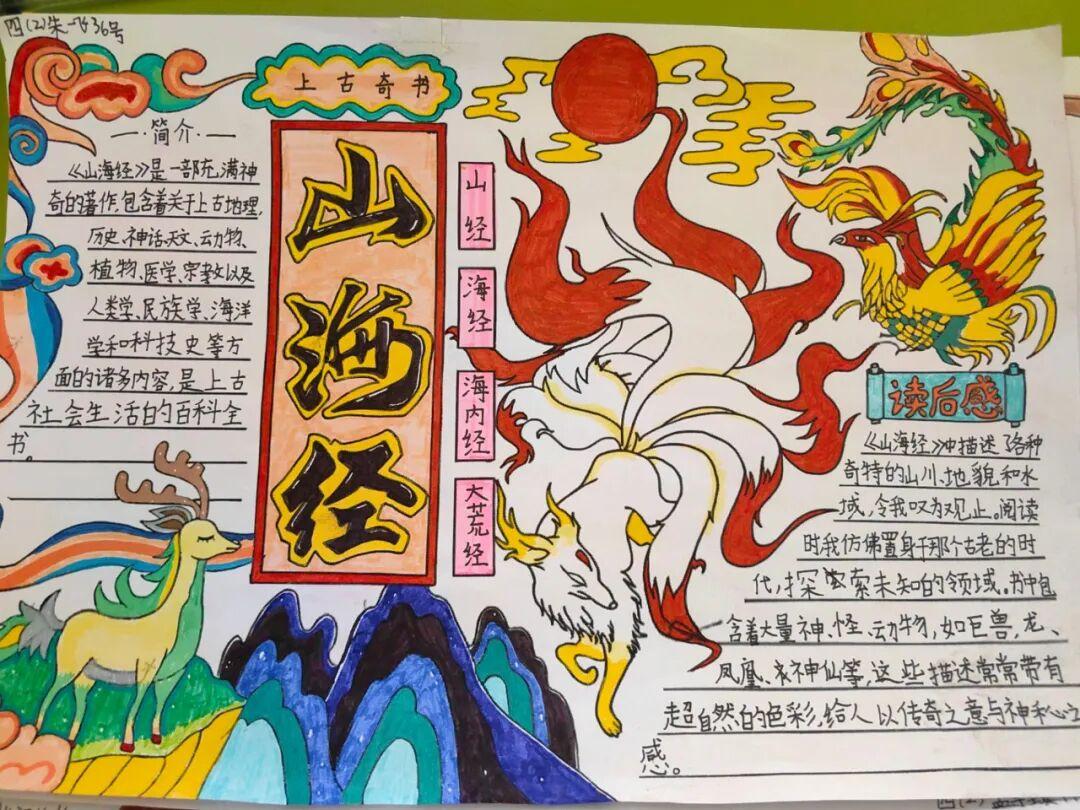 四(2)朱一飞36号
上古奇书
山海经
一·简介·一
《山海经》是一部充满神
奇的著作,包含着关于上古地理,
历史、神话天文、动物、
植物、医学、宗教以及
人类学、民族学、海洋
学和科技史等方
面的诸多内容,是上古
社会生活的百科全
书。
山经
海经
海内经
大荒经
读后感
《山海经》中描述了各种
奇特的山川、地貌和水
域,令我叹为观止。阅读
时我仿佛置身于那个古老的时
代,探索未知的领域。书中包
含着大量神、怪、动物,如巨兽,龙、
凤凰、神仙等,这些描述常常带有
超自然的色彩,给人以传奇之意与神秘之
感。
四(2)